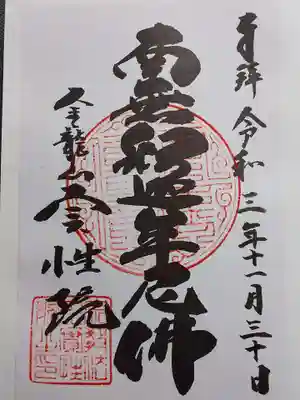 奉拝 令和三年十一月三十日
南無釈迦牟尼佛
金龍山 性院